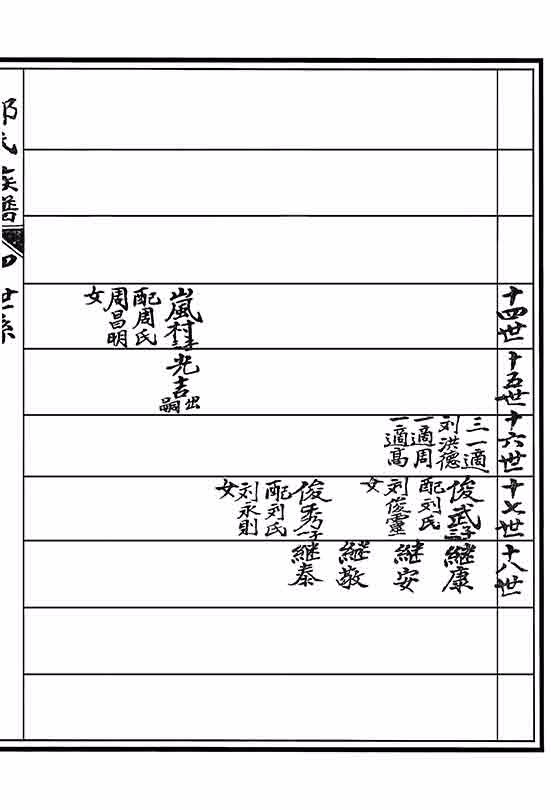 十四世
十五世
十六世
十七世
十八世
三一適
刘洪德
一適周
一適高
俊武三子
配刘氏
刘俊靈
女
继康
继安
继敬
俊秀一子
配刘氏
刘永则
女
继泰
嵐村
配周氏
周昌明
女
光吉出
嗣
氏族譜
四
世系